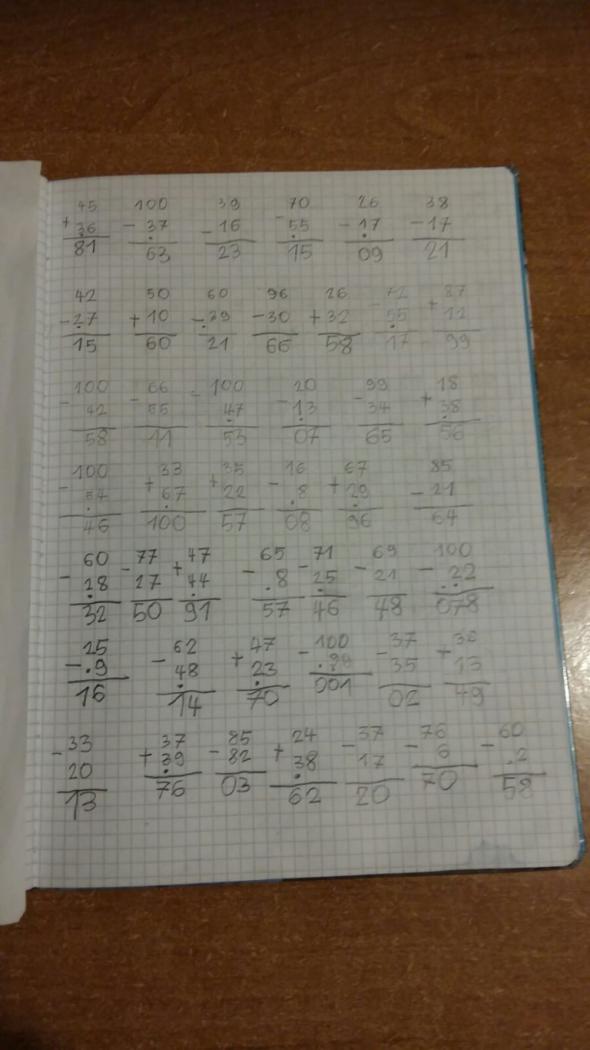 45 100 39 70 26 38
+ 36 - 37 - 16 - 55 - 17 - 17
81 63 23 15 09 21
42 50 60 96 26 72 87
- 27 + 10 - 39 - 30 + 32 - 55 + 12
15 60 21 66 58 17 99
100 66 100 20 99 18
- 42 - 55 - 47 - 13 - 34 + 38
58 11 53 07 65 56
100 33 35 16 67 85
- 54 + 67 + 22 - 8 + 29 - 21
46 100 57 08 96 64
60 77 47 65 71 69 100
- 28 - 27 + 44 - 8 - 25 - 21 - 22
32 50 91 57 46 48 078
25 62 47 100 37 36
- 9 - 48 + 23 - 99 - 35 + 13
16 14 70 001 02 49
33 37 85 24 37 76 60
- 20 + 39 - 82 + 38 - 17 - 6 - 2
13 76 03 62 20 70 58